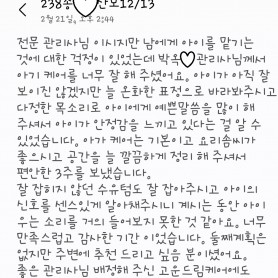 238종 산모12/13
2월 21일, 오후 2:44
전문 관리사님 이시지만 남에게 아이를 맡기는
것에 대한 걱정이 있었는데 박옥 관리사님께서
아기 케어를 너무 잘 해 주셨어요. 아이가 아직 잘
보이진 않겠지만 늘 온화한 표정으로 바라봐주시고
다정한 목소리로 아이에게 예쁜말씀을 많이 해
주셔서 아이가 안정감을 느끼고 있다는 걸 알 수
있었습니다. 아가 케어는 기본이고 요리솜씨가
좋으시고 공간을 늘 깔끔하게 정리 해 주셔서
편안한 3주를 보냈습니다.
잘 잡히지 않던 수유텀도 잘 잡아주시고 아이의
신호를 센스있게 알아채주시니 계시는 동안 아이
우는 소리를 거의 들어보지 못한 것 같아요. 너무
만족스럽고 감사한 기간 이었습니다. 둘째계획은
없지만 주변에 추천 드리고 싶음 분이셨어요.
좋은 관리사님 배정해 주신 고운드림케어에도